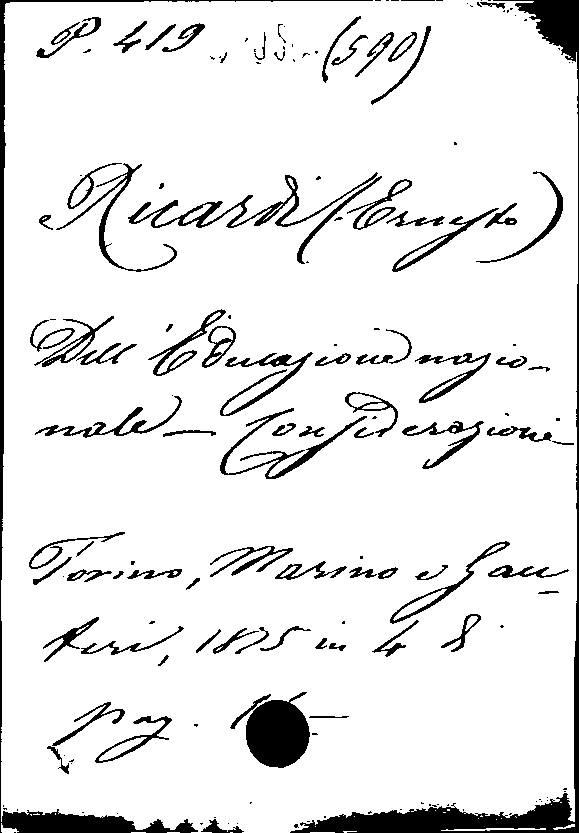 P. 419 (590)
Ricardi (Ernesto)
Dell'Educazione nazio-
nale - Considerazioni
Torino, Marino e Gau-
tieri, 1875 in 4 8.
pag.